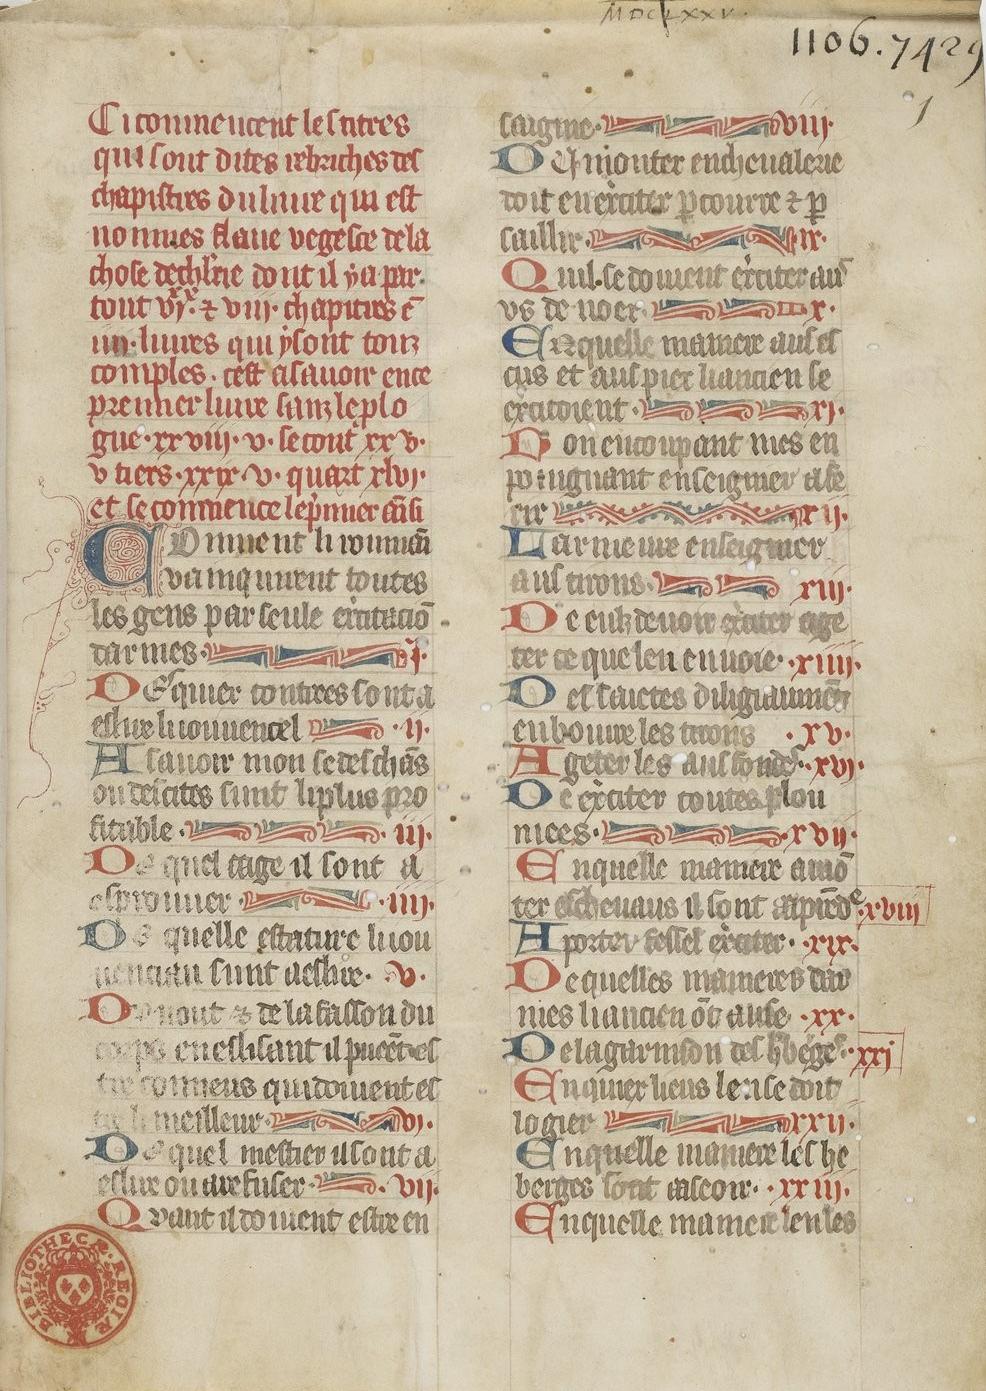 MDCLXXV.
1106. 7429
1
Ci commencent les titres
qui sont dites rebriches des
chapistres du liure qui est
nommes flaue vegesce de la
chose de chlrie dont il y a par
tout vjxx. & viii. chapitres e
iiii. liures qui y sont touz
comples. cest asauoir en ce
premier liure sanz le plo
gue. xxviii. v. second xxv.
v tiers. xxix. v. quart xlvi.
et se commence le pmier ainsi
Comment li rommain
vainquirent toutes
les gens par seule excitacio
darmes. i.
Desquier contrees sont a
eslire li iouuencel ii.
A sauoir mon se des chas
ou des cites sunt li plus pro
fitable. iii.
De quel eage il sont a
esprouuer iiii.
De quelle estature li iou
uencian sunt a eslire. v.
De la fasson du
corps en eslisant il pueet es
tre conneus qui doiuent es
tre li meilleur. vi.
De quel mestier il sont a
eslire ou a refuser. vii.
Quant il doiuent estre en
saigne. viii.
De monter en cheualerie
doit en exciter p courre & p
saillir. ix.
Quil se doiuent exciter aus
vs de noer x.
En quelle maniere aus es
cus et aus piex li ancien se
excitoient. xi.
Non en coupant mes en
poingnant enseignier a fe
rir xii.
Larmeure enseignier
aus tirons. xiii.
De eulz deuoir exciter a ge
ter ce que len enuoie. xiiii.
De saietes diligiaument
enbouire les tirons xv.
A geter les aus fondes. xvi.
De exciter toutes plou
mees. xvii.
En quelle maniere a mo
ter es cheuaus il sont a xviii
A porter fessel exciter. xix.
De quelles manieres dar
mes li ancien ot ause. xx.
De la garnison des hberges. xxi
En quier lieus len se doit
logier xxii.
En quelle maniere les he
berges sont a aseoir. xxiii.
En quelle maniere len les
BIBLIOTHECÆ REGIÆ